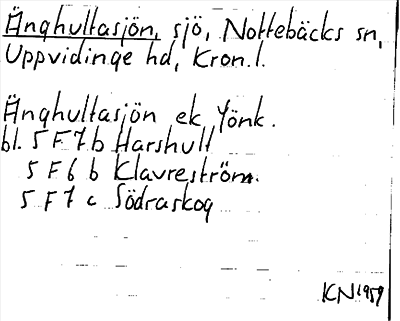 Änghultasjön, sjö, Nottebäcks sn,
Uppvidinge hd, Kron.l.
Änghultasjön ek Yönk.
bl. 5 F 7 b Harshult
5 F 6 b Klavreström.
5 F 7 c Södraskog
KN 1959